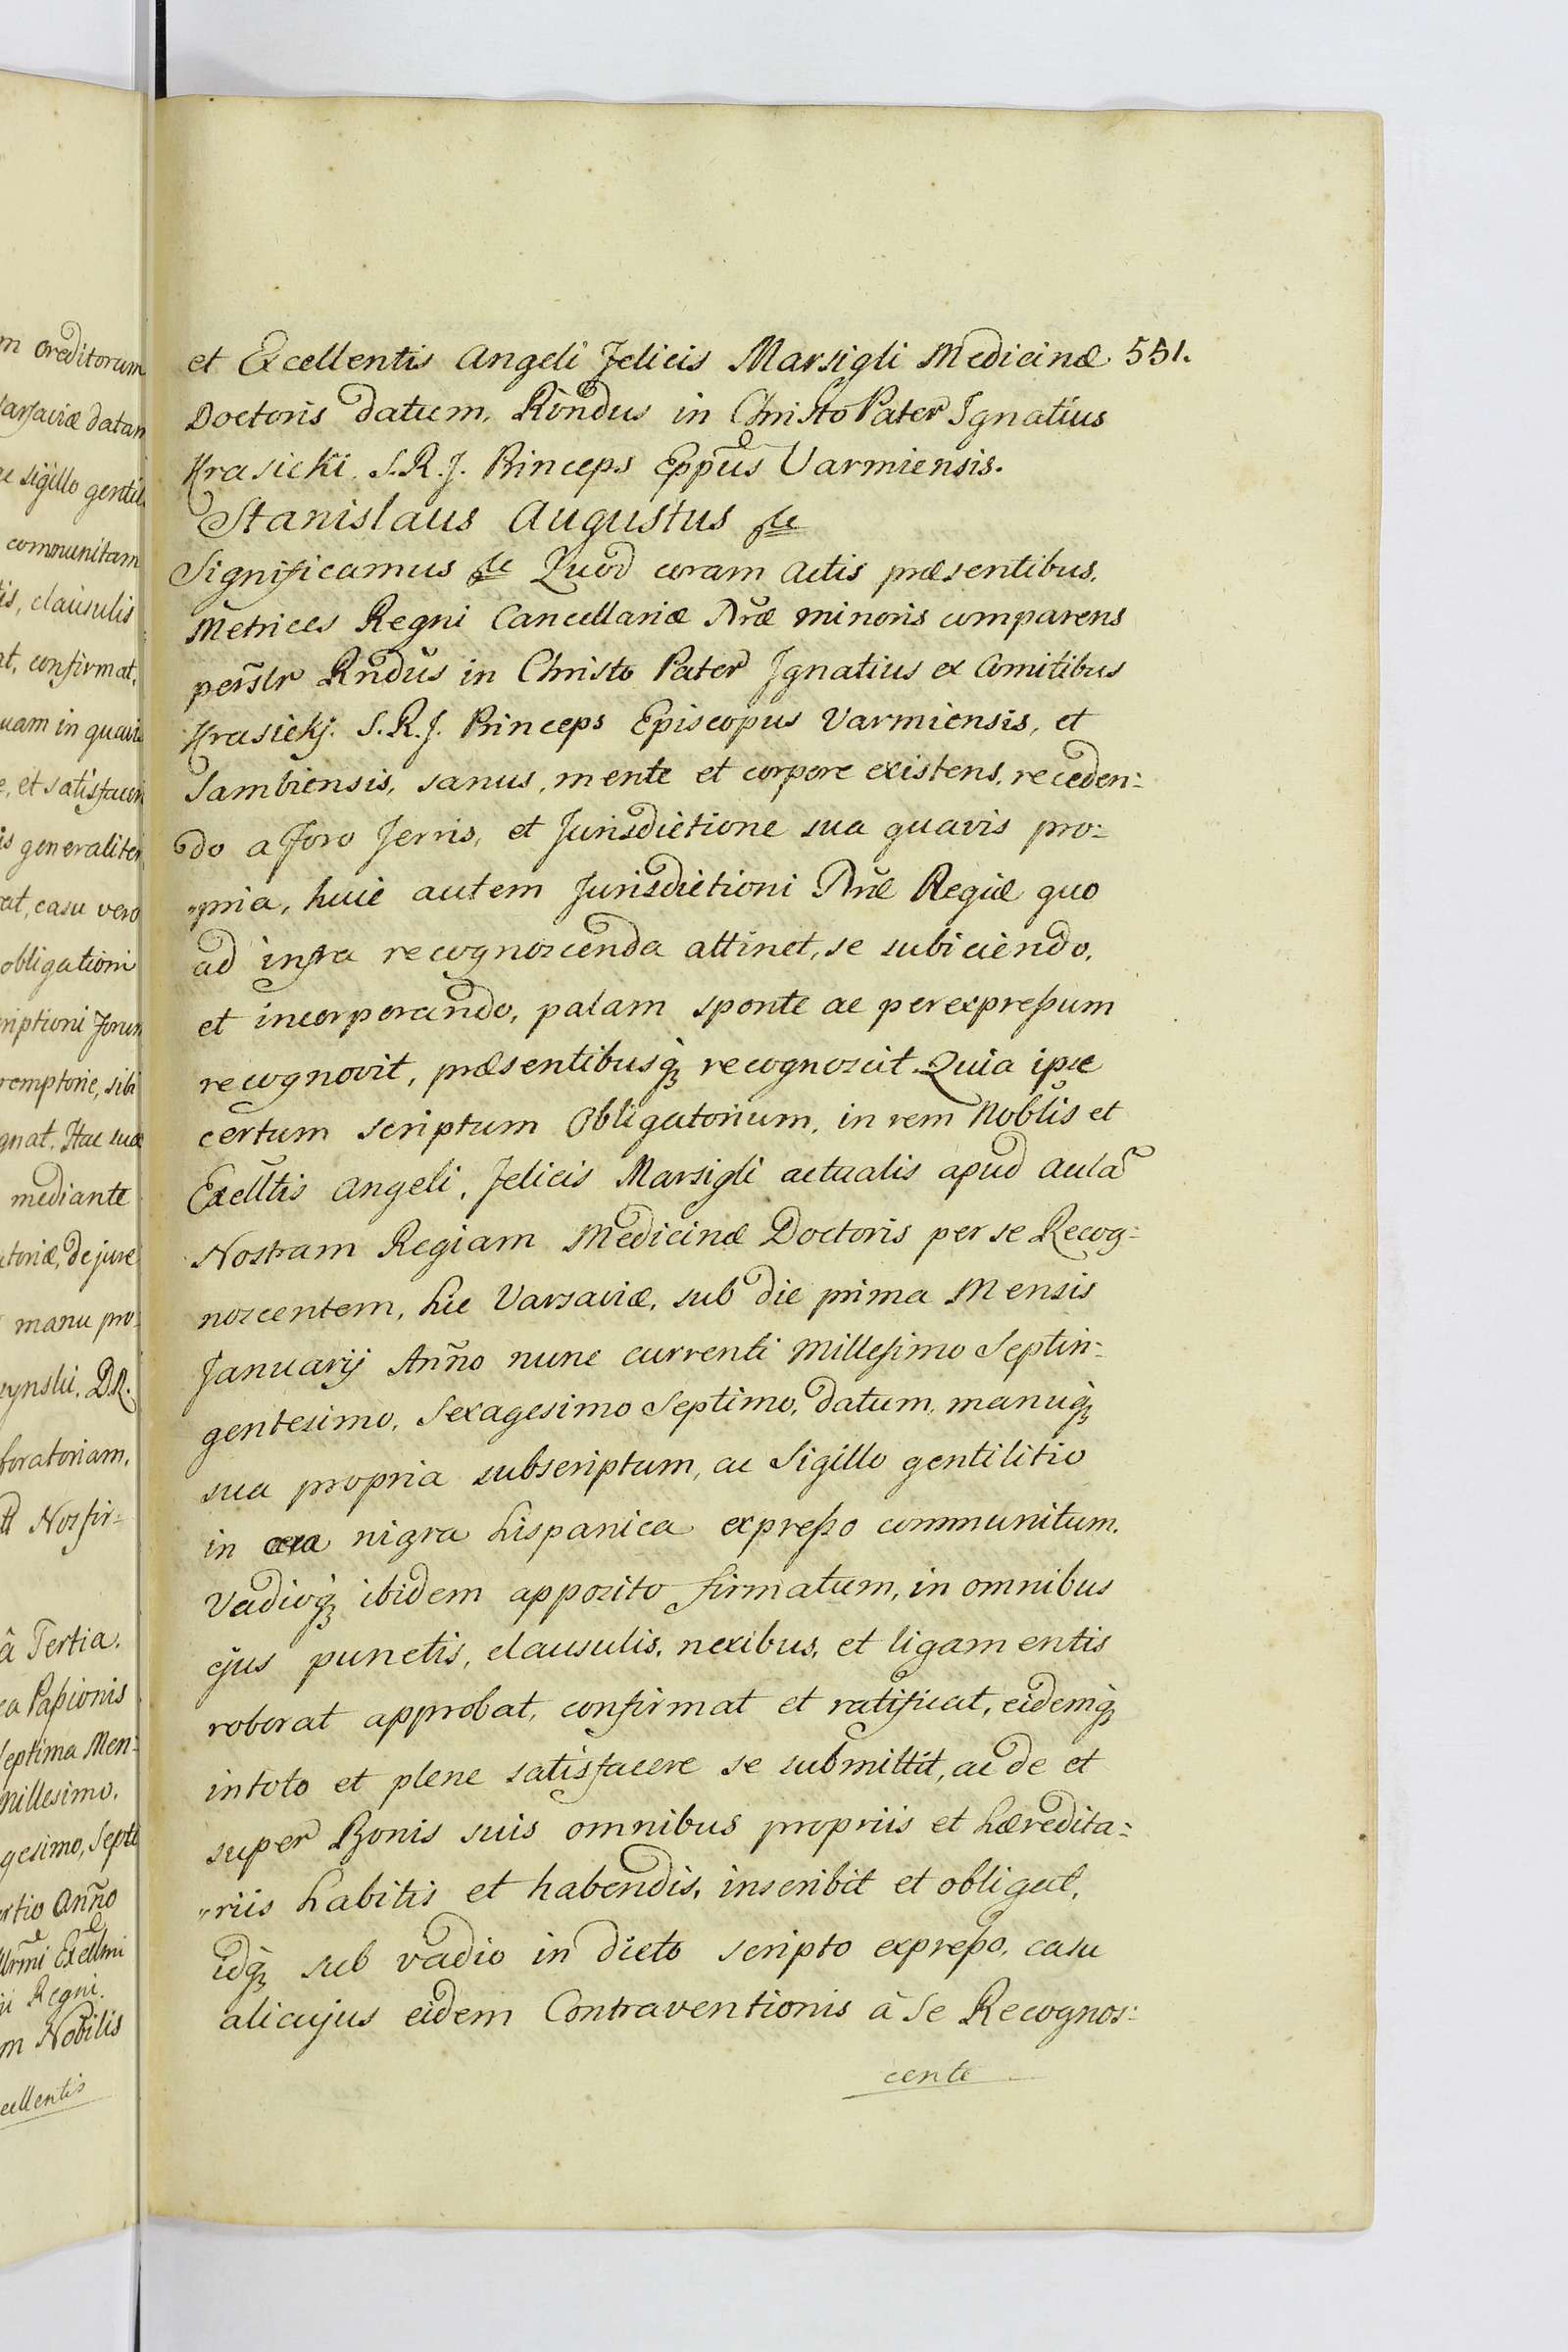 m Creditorum
arsaviæ datam
e sigillo gentil
communitam
is, clausulis
at, confirmat,
uam in quavis
e, et satisfacen
is generaliter
at, casu vero
obligationi
riptioni Forum
remptorie, sibi
gnat. Hac suæ
mediante
atoriæ, de jure
manu pro
zynski. DR.
boratoriam.
Nos fir=
â Tertia.
ca Paßionis
Septima Men:
millesimo.
gesimo, Septi
rtio Anno
Illrmi Excellmi
ii Regni.
m Nobilis
cellentis
et Excellentis Angeli Felicis Marsigli Medicinæ 551.
Doctoris datum, Rondus in Christo Pater Ignatius
Krasicki S.R.J. Princeps Eppus Varmiensis.
Stanislaus Augustus &c
Significamus &c Quod coram Actis præsentibus,
Metrices Regni Cancellariæ Nræ minoris comparens
persr Rndus in Christo Pater Ignatius ex Comitibus
Krasickj. S.R.J. Princeps Episcopus Varmiensis, et
Sambiensis, sanus, mente et corpore existens, receden:
do a Foro Terris, et Jurisdictione sua quavis pro:
„pria, huic autem Jurisdictioni Nræ Regiæ quo
ad infra recognoscenda attinet, se subiciendo,
et incorporando, palam sponte ac per expreßum
recognovit, præsentibusq; recognoscit. Quia ipse
certum scriptum Obligatorium, in rem Noblis et
Exclltis Angeli, Felicis Marsigli actualis apud Aulã
Nostram Regiam Medicinæ Doctoris per se Recog:
noscentem, hic Varsaviæ, sub die prima Mensis
Januarij Anno nunc currenti Millesimo Septin:
gentesimo, Sexagesimo Septimo, datum, manuq;
sua propria subscriptum, ac Sigillo gentilitio
in cera nigra hispanica expreßo communitum.
Vadioq; ibidem apposito firmatum, in omnibus
ejus punctis, clausulis, nexibus, et ligamentis
roborat approbat, confirmat et ratificat, eidemq;
in toto et plene satisfacere se submittit, ac de et
super Bonis suis omnibus propriis et hæredita:
„riis habitis et habendis, inscribit et obligat,
idq; sub vadio in dicto scripto expreßo, casu
alicujus eidem Contraventionis à Se Recognos:
cente